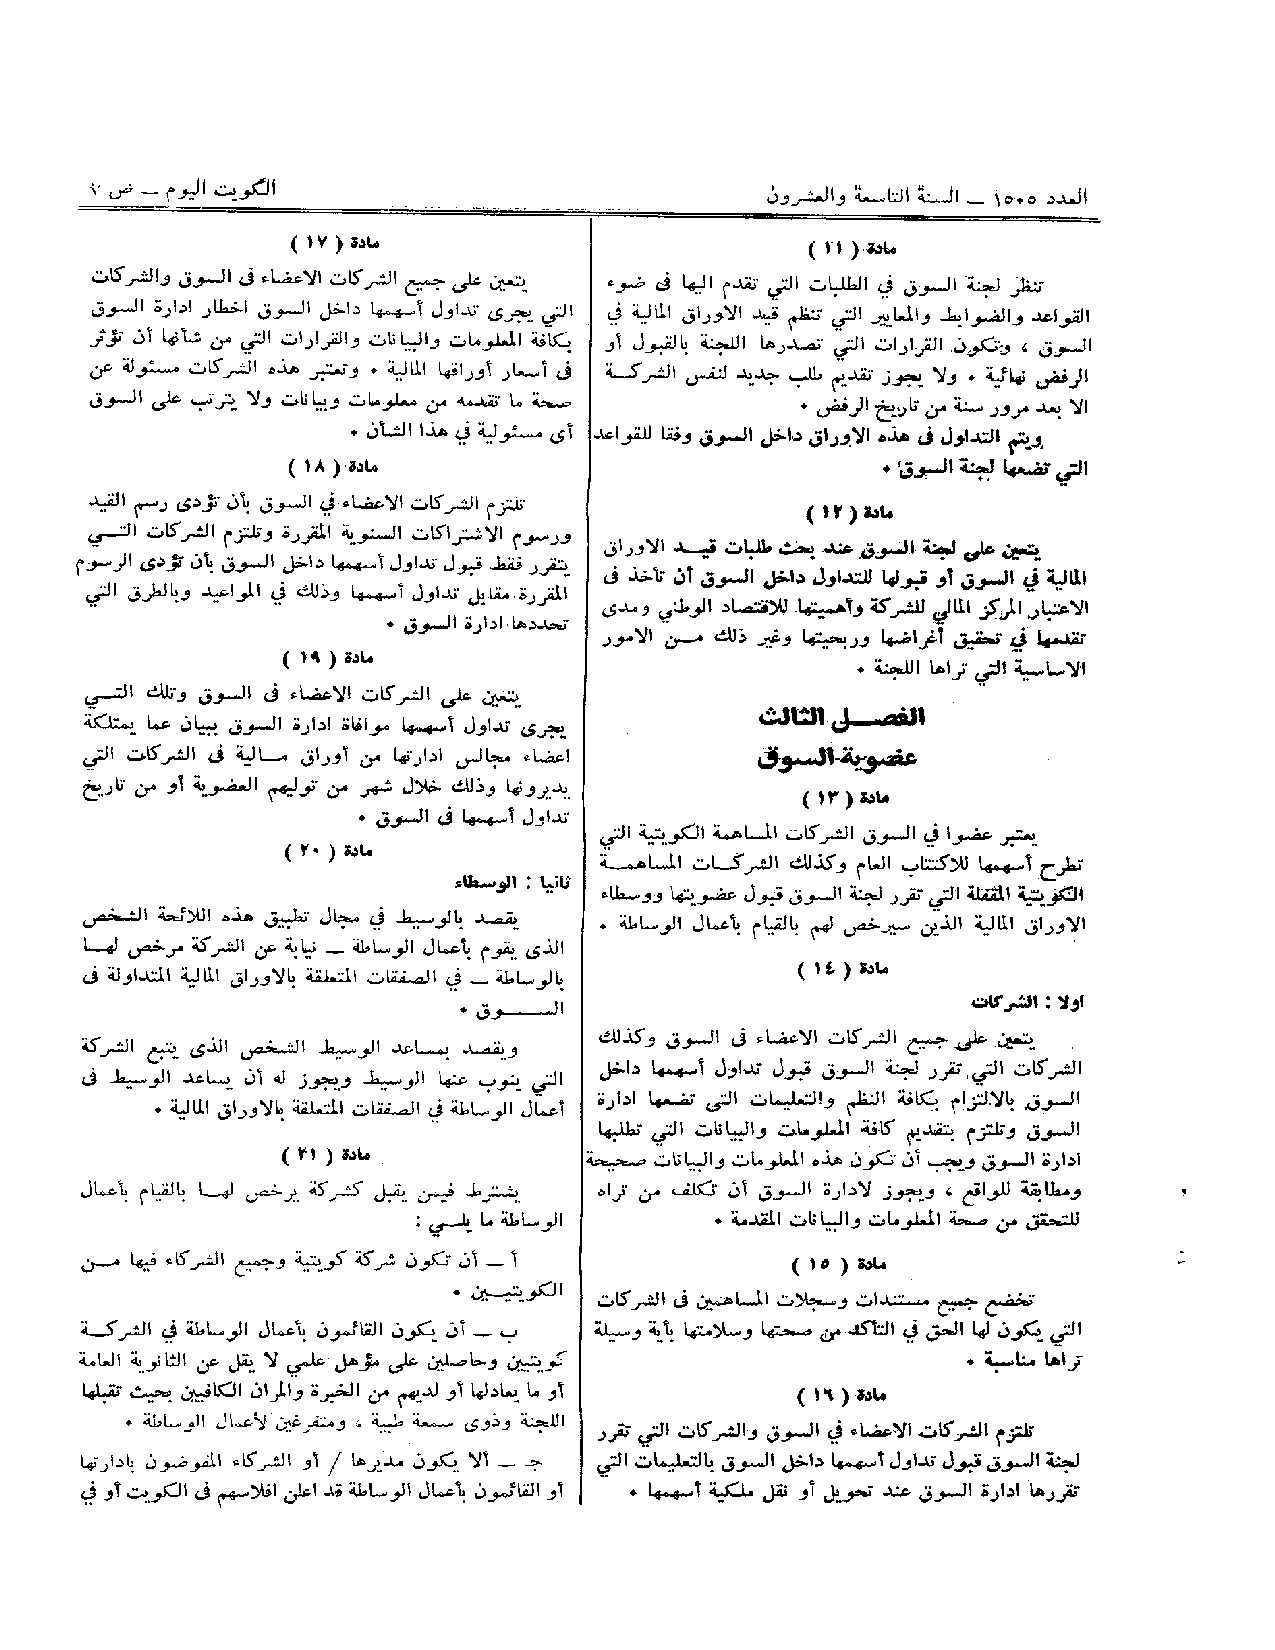 العدد ١٥٠٥ ـ السنة التاسعة والعشرون
الكويت اليوم ـ ص ٧
مادة ( ١١ )
تنظر لجنة السوق في الطلبات التي تقدم اليها فى ضوء
القواعد والضوابط والمعايير التي تنظم قيد الاوراق المالية في
السوق ، وتكون القرارات التي تصدرها اللجنة بالقبول أو
الرفض نهائية ٠ ولا يجوز تقديم طلب جديد لنفس الشركة
الا بعد مرور سنة من تاريخ الرفض ٠
ويتم التداول فى هذه الاوراق داخل السوق وفقا للقواعد
التي تضعها لجنة السوق ٠
مادة ( ١٢ )
يتعين على لجنة السوق عند بحث طلبات قيد الاوراق
المالية في السوق أو قبولها للتداول داخل السوق أن تأخذ فى
الاعتبار المركز المالي للشركة وأهميتها للاقتصاد الوطني ومدى
تقدمها في تحقيق أغراضها وربحيتها وغير ذلك من الامور
الاساسية التي تراها اللجنة ٠
الفصل الثالث
عضوية السوق
مادة ( ١٣ )
يعتبر عضوا في السوق الشركات المساهمة الكويتية التي
تطرح أسهمها للاكتتاب العام وكذلك الشركات المساهمة
الكويتية المقفلة التي تقرر لجنة السوق قبول عضويتها ووسطاء
الاوراق المالية الذين سيرخص لهم بالقيام بأعمال الوساطة ٠
مادة ( ١٤ )
اولا : الشركات
يتعين على جميع الشركات الاعضاء فى السوق وكذلك
الشركات التي تقرر لجنة السوق قبول تداول أسهمها داخل
السوق بالالتزام بكافة النظم والتعليمات التى تضعها ادارة
السوق وتلتزم بتقديم كافة المعلومات والبيانات التي تطلبها
ادارة السوق ويجب أن تكون هذه المعلومات والبيانات صحيحة
ومطابقة للواقع ، ويجوز لادارة السوق أن تكلف من تراه
للتحقق من صحة المعلومات والبيانات المقدمة ٠
مادة ( ١٥ )
تخضع جميع مستندات وسجلات المساهمين فى الشركات
التي يكون لها الحق في التأكد من صحتها وسلامتها بأية وسيلة
تراها مناسبة ٠
مادة ( ١٦ )
تلتزم الشركات الاعضاء في السوق والشركات التي تقرر
لجنة السوق قبول تداول أسهمها داخل السوق بالتعليمات التي
تقررها ادارة السوق عند تحويل أو نقل ملكية أسهمها ٠
مادة ( ١٧ )
يتعين على جميع الشركات الاعضاء فى السوق والشركات
التي يجرى تداول أسهمها داخل السوق اخطار ادارة السوق
بكافة المعلومات والبيانات والقرارات التي من شأنها أن تؤثر
فى أسعار أوراقها المالية ٠ وتعتبر هذه الشركات مسئولة عن
صحة ما تقدمه من معلومات وبيانات ولا يترتب على السوق
أى مسئولية في هذا الشأن ٠
مادة ( ١٨ )
تلتزم الشركات الاعضاء في السوق بأن تؤدى رسم القيد
ورسوم الاشتراكات السنوية المقررة وتلتزم الشركات التي
يتقرر فقط قبول تداول أسهمها داخل السوق بأن تؤدى الرسوم
المقررة مقابل تداول أسهمها وذلك في المواعيد وبالطرق التي
تحددها ادارة السوق ٠
مادة ( ١٩ )
يتعين على الشركات الاعضاء فى السوق وتلك التي
يجرى تداول أسهمها موافاة ادارة السوق ببيان عما يمتلكة
اعضاء مجالس ادارتها من أوراق مالية فى الشركات التي
يديرونها وذلك خلال شهر من توليهم العضوية أو من تاريخ
تداول أسهمها فى السوق ٠
مادة ( ٢٠ )
ثانيا : الوسطاء
يقصد بالوسيط في مجال تطبيق هذه اللائحة الشخص
الذى يقوم بأعمال الوساطة ـ نيابة عن الشركة مرخص لها
بالوساطة ـ في الصفقات المتعلقة بالاوراق المالية المتداولة فى
السوق ٠
ويقصد بمساعد الوسيط الشخص الذى يتبع الشركة
التي ينوب عنها الوسيط ويجوز له أن يساعد الوسيط فى
أعمال الوساطة في الصفقات المتعلقة بالاوراق المالية ٠
مادة ( ٢١ )
يشترط فيمن يقبل كشركة يرخص لها بالقيام بأعمال
الوساطة ما يلي :
أ ـ أن تكون شركة كويتية وجميع الشركاء فيها من
الكويتيين ٠
ب ـ أن يكون القائمون بأعمال الوساطة في الشركة
كويتيين وحاصلين على مؤهل علمي لا يقل عن الثانوية العامة
أو ما يعادلها أو لديهم من الخبرة والمران الكافيين بحيث تقبلها
اللجنة وذوى سمعة طيبة ، ومتفرغين لأعمال الوساطة ٠
جـ ـ ألا يكون مديرها / أو الشركاء المفوضون بادارتها
أو القائمون بأعمال الوساطة قد اعلن افلاسهم فى الكويت أو في